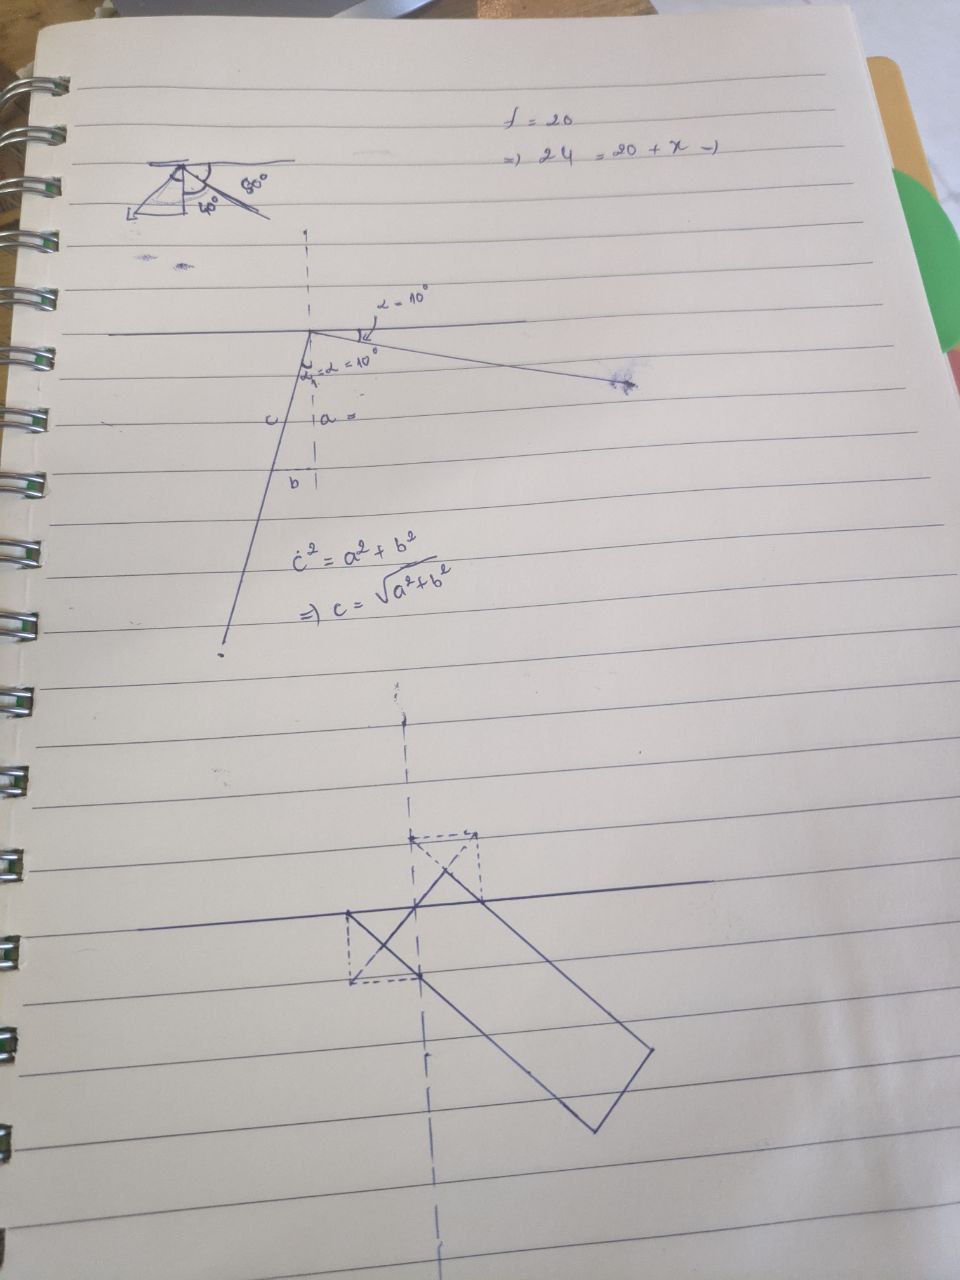 f = 20
=) 24 = 20 + x -)
50°
40°
α = 10°
α₁ = α = 10°
c
a =
b
c² = a² + b²
=) c = √a²+b²